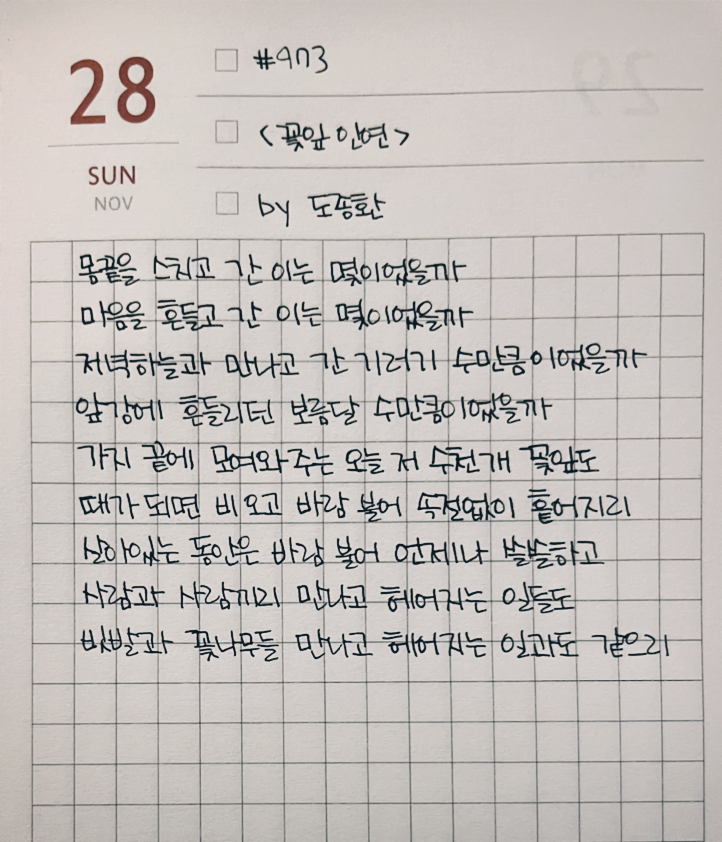 28
SUN
NOV
#973
<꽃잎 인연>
by 도종환
몸끝을 스치고 간 이는 몇이었을까
마음을 흔들고 간 이는 몇이었을까
저녁하늘과 만나고 간 기러기 수만큼이었을까
앞강에 흔들리던 보름달 수만큼이었을까
가지 끝에 모여와주는 오늘 저 수천개 꽃잎도
때가 되면 비오고 바람 불어 속절없이 흩어지리
살아있는 동안은 바람 불어 언제나 쓸쓸하고
사람과 사람끼리 만나고 헤어지는 일들도
빗발과 꽃나무들 만나고 헤어지는 일과도 같으리